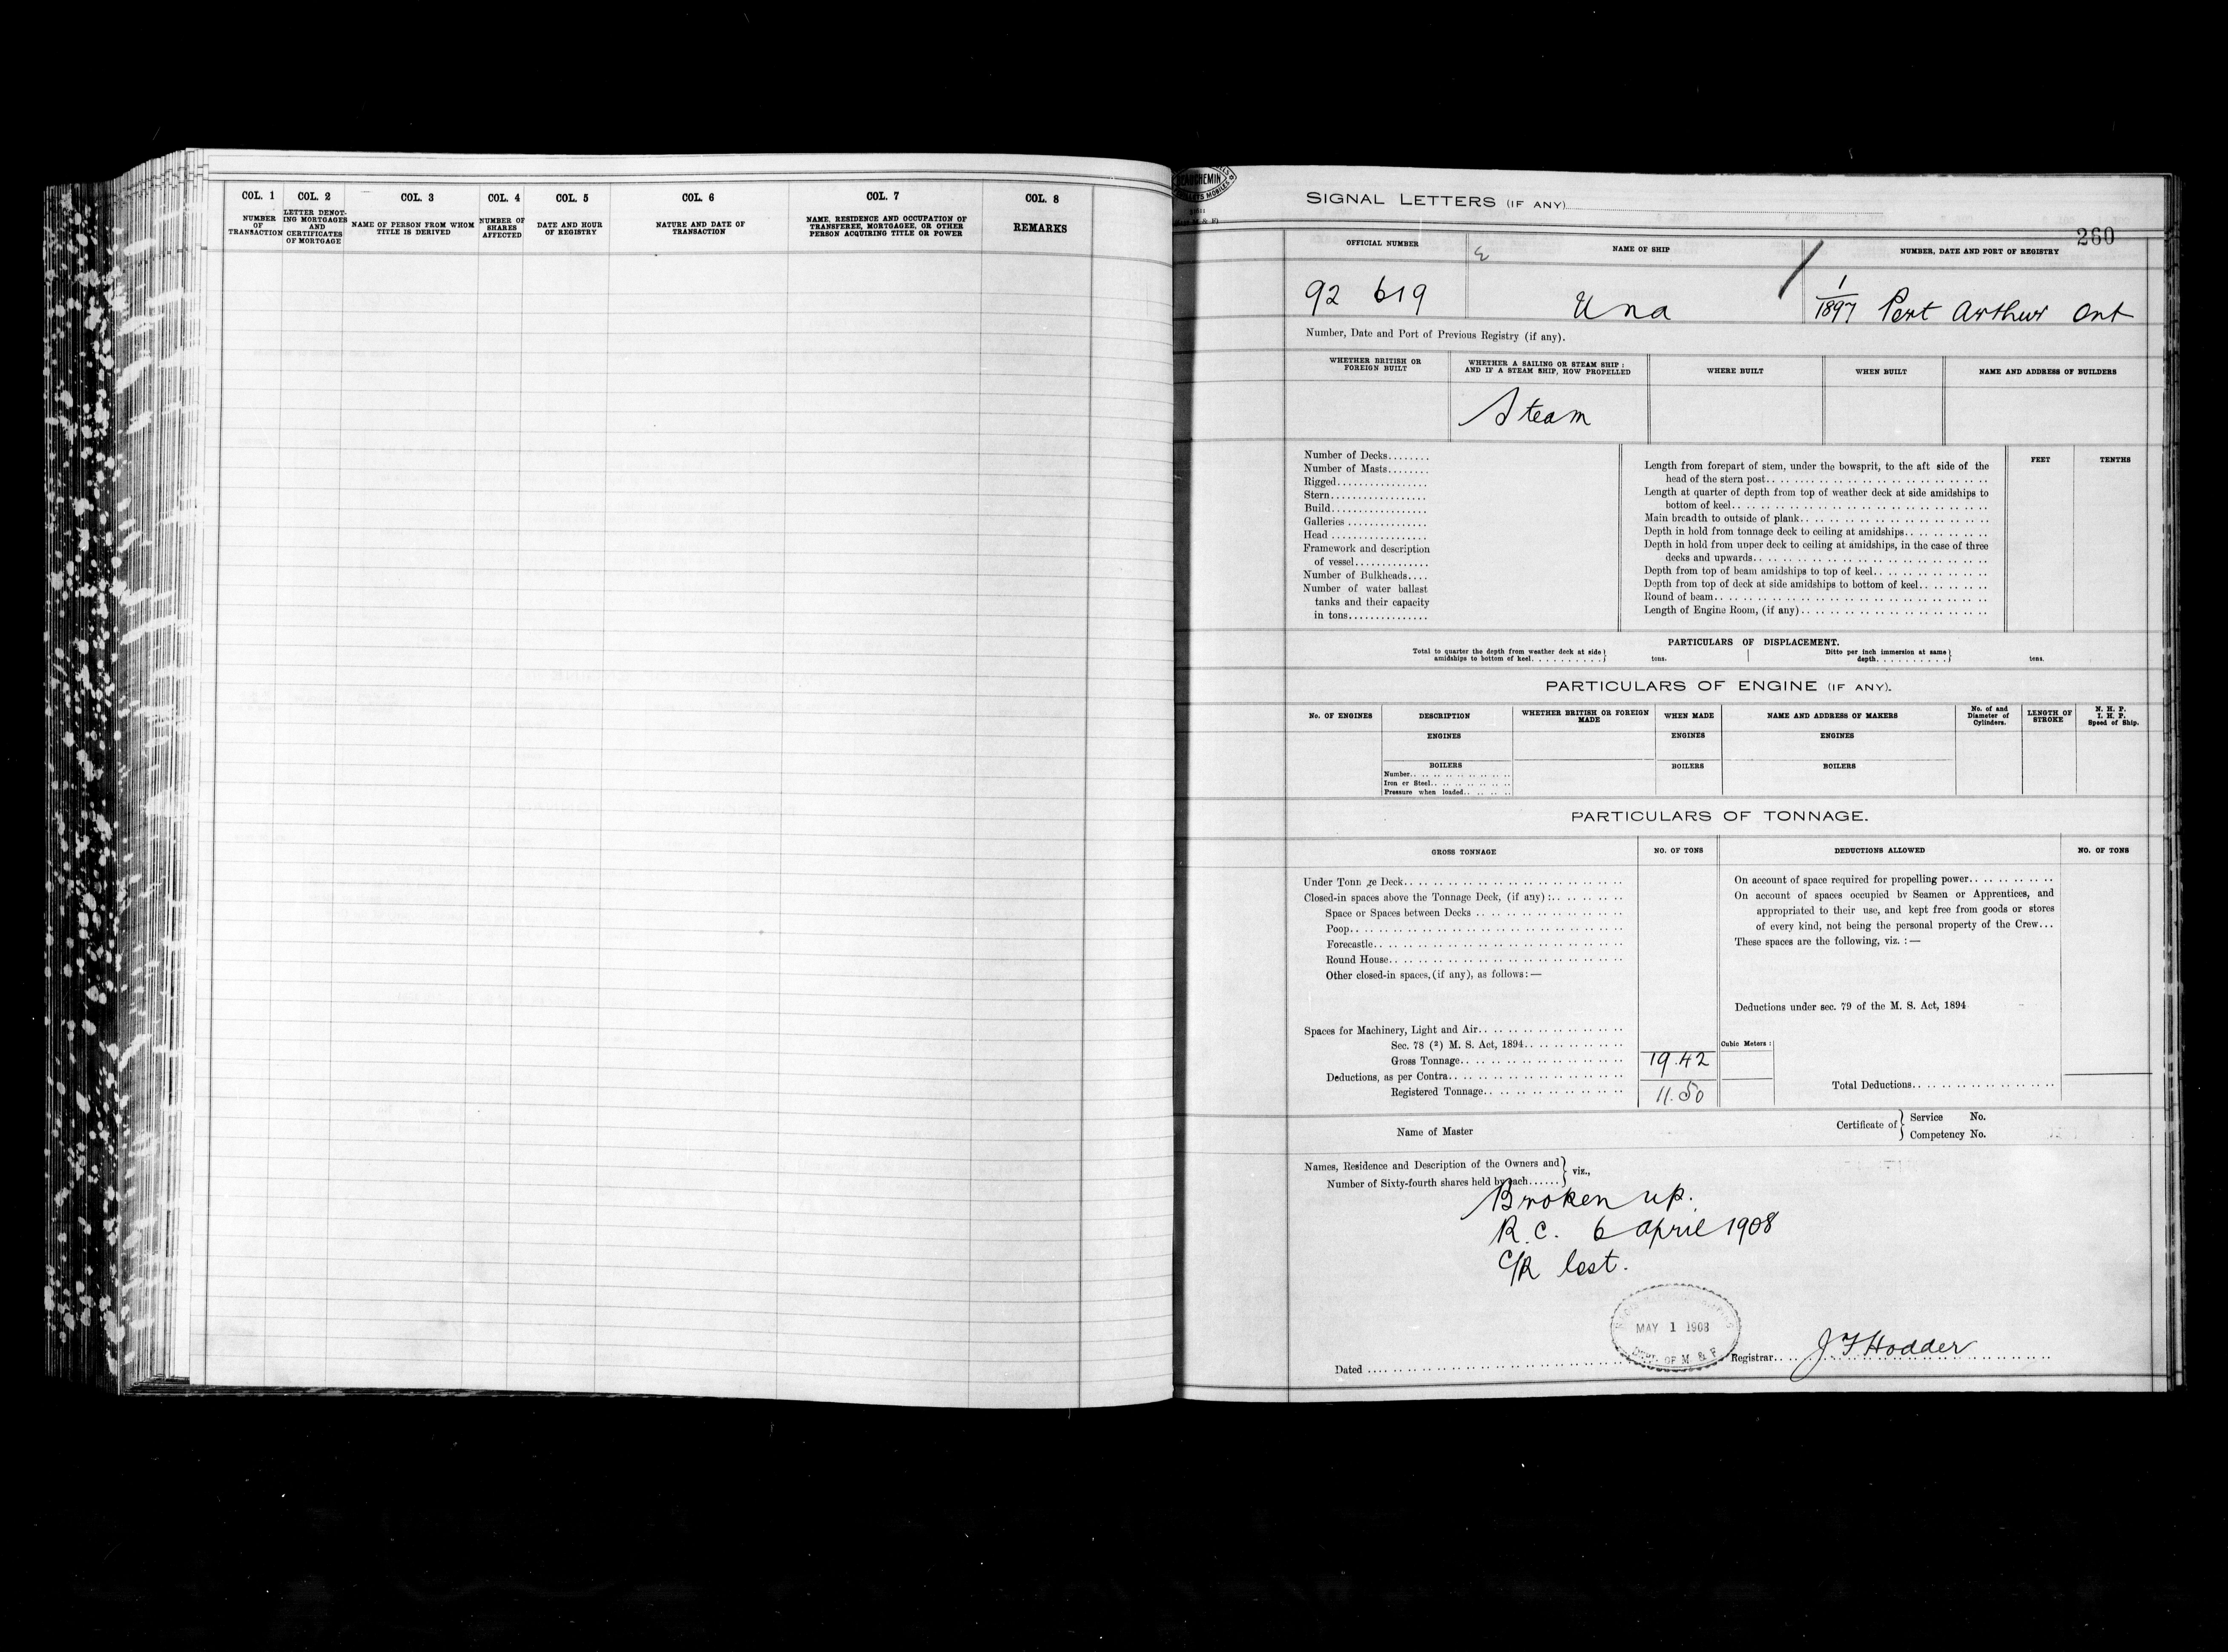 COL. 1 COL. 2 COL. 3 COL. 4 COL. 5 COL. 6 COL. 7 COL. 8
NUMBER OF TRANSACTION
LETTER DENOT-ING MORTGAGES AND CERTIFICATES OF MORTGAGE
NAME OF PERSON FROM WHOM TITLE IS DERIVED
NUMBER OF SHARES AFFECTED
DATE AND HOUR OF REGISTRY
NATURE AND DATE OF TRANSACTION
NAME, RESIDENCE AND OCCUPATION OF TRANSFEREE, MORTGAGEE, OR OTHER PERSON ACQUIRING TITLE OR POWER
REMARKS
BEAUCHEMIN
SIGNAL LETTERS (IF ANY)
260
OFFICIAL NUMBER NAME OF SHIP NUMBER, DATE AND PORT OF REGISTRY
92 619 Una 1/1897 Port Arthur Ont
Number, Date and Port of Previous Registry (if any).
WHETHER BRITISH OR FOREIGN BUILT
WHETHER A SAILING OR STEAM SHIP: AND IF A STEAM SHIP, HOW PROPELLED
WHERE BUILT
WHEN BUILT
NAME AND ADDRESS OF BUILDERS
Steam
Number of Decks........
Number of Masts........
Rigged.................
Stern..................
Build..................
Galleries ...............
Head ..................
Framework and description
of vessel..............
Number of Bulkheads....
Number of water ballast
tanks and their capacity
in tons...............
FEET TENTHS
Length from forepart of stem, under the bowsprit, to the aft side of the
head of the stern post..
Length at quarter of depth from top of weather deck at side amidships to
bottom of keel..
Main breadth to outside of plank..
Depth in hold from tonnage deck to ceiling at amidships..
Depth in hold from upper deck to ceiling at amidships, in the case of three
decks and upwards..
Depth from top of beam amidships to top of keel..
Depth from top of deck at side amidships to bottom of keel..
Round of beam..
Length of Engine Room, (if any)..
PARTICULARS OF DISPLACEMENT.
Total to quarter the depth from weather deck at side
amidships to bottom of keel.......... tons.
Ditto per inch immersion at same
depth.......... tons.
PARTICULARS OF ENGINE (IF ANY).
No. OF ENGINES
DESCRIPTION
WHETHER BRITISH OR FOREIGN MADE
WHEN MADE
NAME AND ADDRESS OF MAKERS
No. of and Diameter of Cylinders.
LENGTH OF STROKE
N. H. P. I. H. P. Speed of Ship.
ENGINES ENGINES ENGINES
BOILERS BOILERS BOILERS
Number..
Iron or Steel..
Pressure when loaded..
PARTICULARS OF TONNAGE.
GROSS TONNAGE NO. OF TONS DEDUCTIONS ALLOWED NO. OF TONS
Under Tonn ge Deck..
Closed-in spaces above the Tonnage Deck, (if any):..
Space or Spaces between Decks ..
Poop..
Forecastle..
Round House..
Other closed-in spaces, (if any), as follows:—
Spaces for Machinery, Light and Air..
Sec. 78 (2) M. S. Act, 1894..
Gross Tonnage.. 19.42
Deductions, as per Contra..
Registered Tonnage.. 11.50
On account of space required for propelling power..
On account of spaces occupied by Seamen or Apprentices, and
appropriated to their use, and kept free from goods or stores
of every kind, not being the personal property of the Crew...
These spaces are the following, viz. :—
Deductions under sec. 79 of the M. S. Act, 1894
Cubic Meters :
Total Deductions..
Name of Master
Certificate of
Service No.
Competency No.
Names, Residence and Description of the Owners and
Number of Sixty-fourth shares held by each......
viz.,
Broken up.
R.C. 6 April 1908
C/R lost.
MAY 1 1908
DEPT. OF M. & F.
Dated ....
Registrar.. J F Hodder